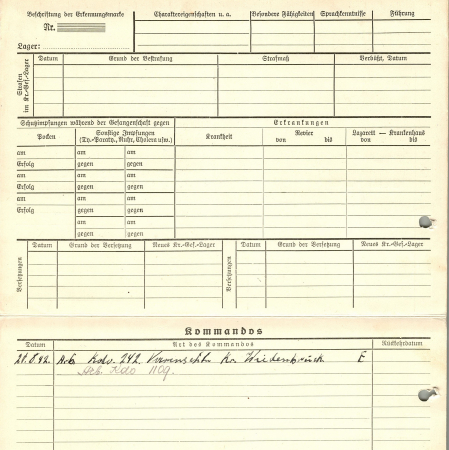 Beschriftung der Erkennungsmarke
Nr.
Lager:
Charaktereigenschaften u. a.
Besondere Fähigkeiten
Sprachkenntnisse
Führung
Strafen im Kr.-Gef.-Lager
Datum
Grund der Bestrafung
Strafmaß
Verbüßt, Datum
Schutzimpfungen während der Gefangenschaft gegen
Erkrankungen
Pocken
Sonstige Impfungen
(Ty.-Paraty., Ruhr, Cholera usw.)
Krankheit
Revier
von bis
Lazarett — Krankenhaus
von bis
am am am
Erfolg gegen gegen
am am am
Erfolg gegen gegen
am am am
Erfolg gegen gegen
am am
gegen gegen
Versetzungen
Datum
Grund der Versetzung
Neues Kr.-Gef.-Lager
Versetzungen
Datum
Grund der Versetzung
Neues Kr.-Gef.-Lager
Kommandos
Datum
Art des Kommandos
Rückkehrdatum
21.8.42. Arb. Kdo. 242. Kr. Wiedenbrück E
Arb. Kdo 1109.